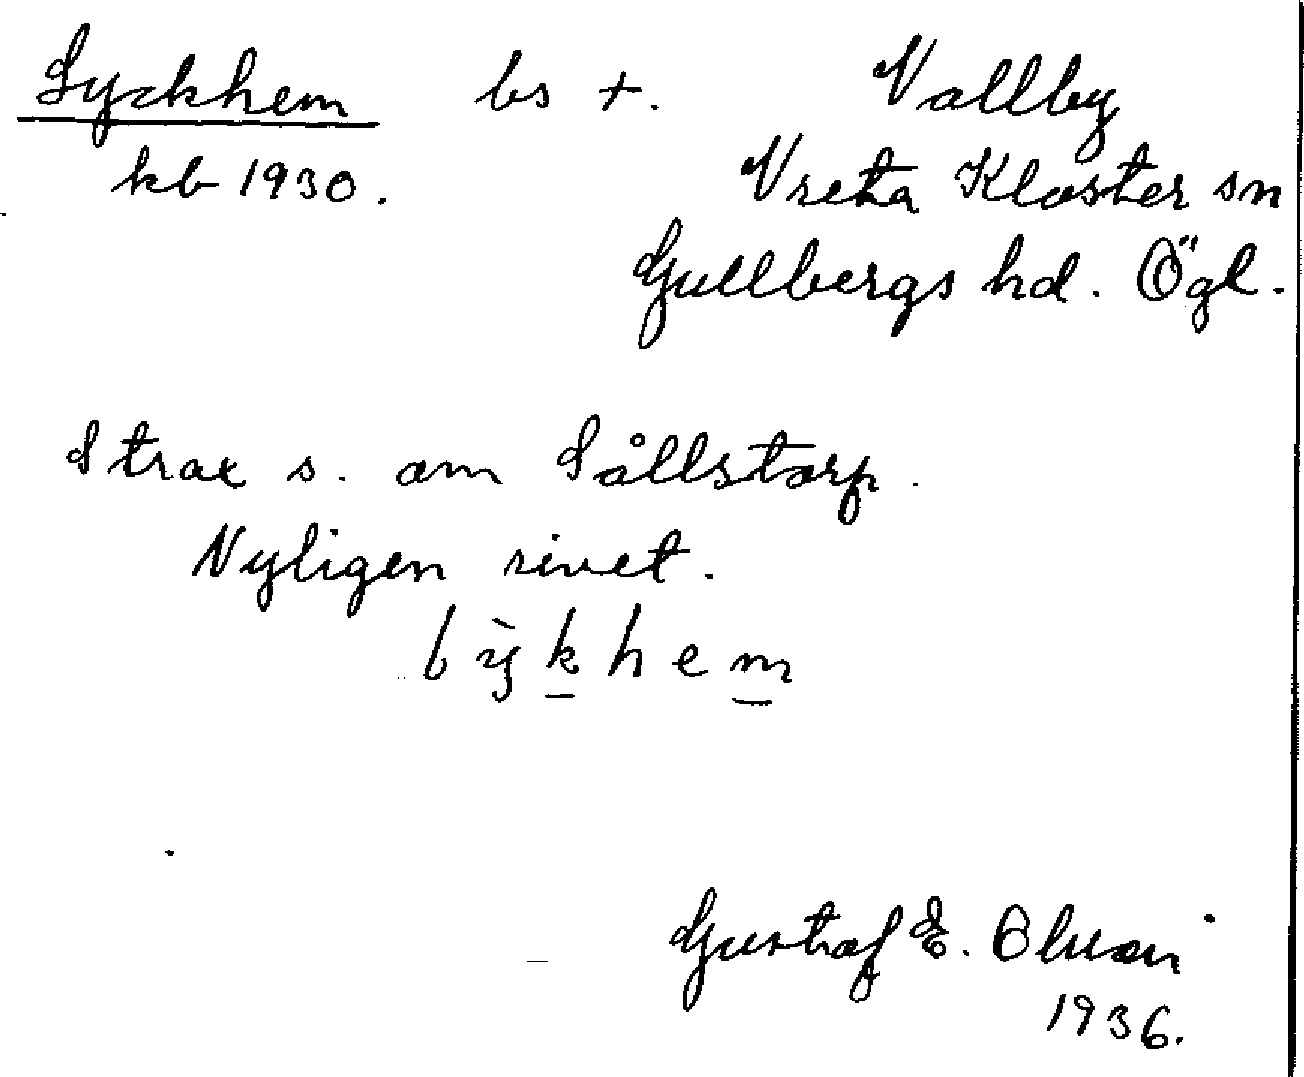 Lyckhem bs +. Vallby
kb 1930. Vreta Kloster sn
Gullbergs hd. Ögl.
Strax s. om Sållstorp.
Nyligen rivet.
lỳkhem
Gustaf E.
1936.